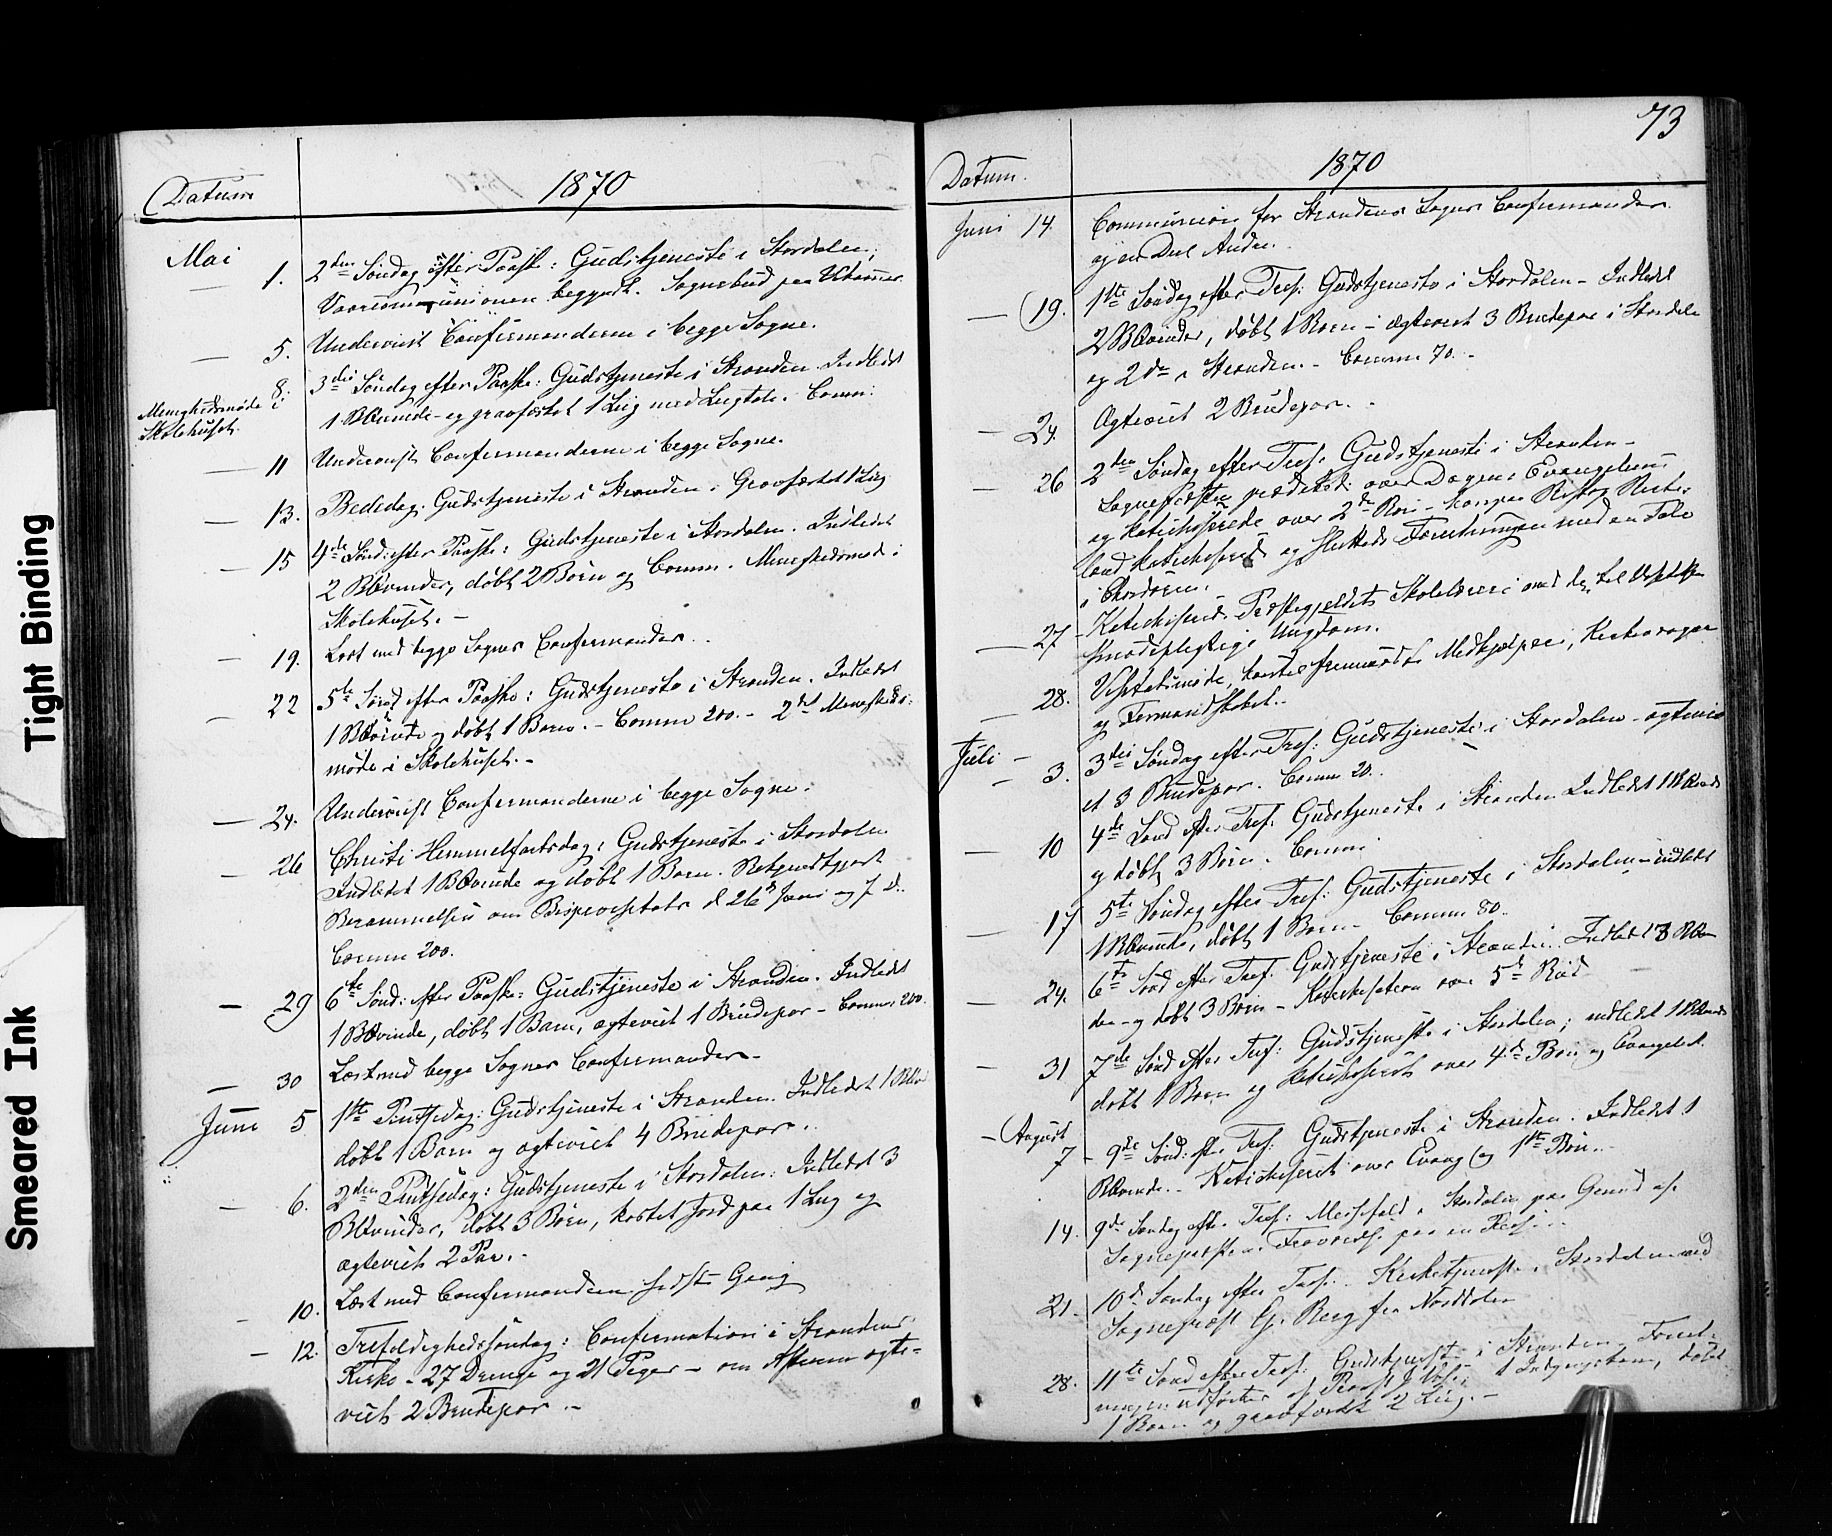 Tight Binding
Smeared Ink
Datum
1870
Mai
1. 2den Søndag efter Paaske: Gudstjeneste i Stordalen;
begyndt. Sognebud paa
5. Underviist Confirmanderne i begge Sogne.
8. 3die Søndag efter Paaske: Gudstjeneste i Stranden. Indledet
Menighedsmøde i
Skolehuset.
1 BKvinde og gravfæstet 1 Liig med Liigtale. Comm:
11 Underviist Confirmanderne i begge Sogne.
13. Bededag. Gudstjeneste i Stranden. Gravfæstet 1 Liig
15 4de Sønd: efter Paaske: Gudstjeneste i Stordalen. Indledet
2 BKvinder, døbt 2 Børn og Comm. Menighedsmøde i
Skolehuset. –
19. Læst med begge Sognes Confirmander.
22 5te Sønd. efter Paaske: Gudstjeneste i Stranden. Indledet
1 BKvinde og døbt 1 Barn. – Comm 200. – 2det Menigheds-
møde i Skolehuset. –
24. Underviist Confirmanderne i begge Sogne.
26 Christi Himmelfartsdag: Gudstjeneste i Stordalen
Indledet 1 BKvinde og døbt 1 Barn.
Berammelsen om Bispevisitats d. 26de Juni og f. D.
Comm 200.
29 6te Sønd: efter Paaske: Gudstjeneste i Stranden. Indledet
1 BKvinde, døbt 1 Barn, ægteviet 1 Brudepar – Comm: 200.
30 Læst med begge Sognes Confirmander –
Juni 5. 1ste Pintsedag: Gudstjeneste i Stranden. Indledet 1 BKv:
døbt 1 Barn og ægteviet 4 Brudepar.
6. 2den Pintsedag: Gudstjeneste i Stordalen: Indledet 3
BKvinder, døbt 3 Børn, kastet Jord paa 1 Liig og
ægteviet 2 Par. –
10. Læst med Confirmanderne sidste Gang
12. Trefoldighedssøndag: Confirmation i Strandens
Kirke – 27 Drenge og 21 Piger – om Aftenen ægte-
viet 2 Brudepar. –
73
Datum.
1870
Juni 14. Communion for Strandens Sogns Confirmander
og en Deel Andre.
19. 1ste Søndag efter Tref: Gudstjeneste i Stordalen – Indledet
2 BKvinder, døbt 1 Barn – ægteviet 3 Brudepar i Stordalen
og 2 do i Stranden. – Comm 70. –
24. Ægteviet 2 Brudepar. –
26 2den Søndag efter Tref: Gudstjeneste i Stranden –
Sognepræsten prædikede over Dagens Evangelium
og katechiserede over 2den Bøn –
katechiserede og sluttede Forretningen med en Tale
i Chordøren.
27 – Katechiserede Præstegjeldets Skolelærere med den til Visitats
mødepligtige Ungdom.
28. Visitatsmøde, hvortil fremmødte Medhjælpere, Kirkeværger
og Formandskabet. –
Juli – 3. 3die Søndag efter Tref: Gudstjeneste i Stordalen – ægtevi-
et 3 Brudepar. Comm 20.
10 4de Sønd efter Tref: Gudstjeneste i Stranden Indledet 1 BKvinde
og døbt 3 Børn. Comm:
17 5te Søndag efter Tref: Gudstjeneste i Stordalen – indledet
1 BKvinde, døbt 1 Barn – Comm 80.
24. 6te Sønd efter Tref. Gudstjeneste i Stranden. Indledet 3 BKvin
der – og døbt 3 Børn – Katechisation over 5te Bud
31 7de Sønd efter Tref: Gudstjeneste i Stordalen; indledet 1 BKvinde
døbt 1 Barn og katechiseret over 4de Bøn og Evangeliet.
August
7 – Sønd: efter Tref: Gudstjeneste i Stranden. Indledet 1
BKvinde. – Katechiseret over Evang og 1ste Bøn. –
14. 9de Søndag efter Tref: Messefald i Stordalen paa Grund af
Sognepræstens Fraværelse paa en Reise.
21. 10de Søndag efter Tref: Kirketjeneste i Stordalen ved
Sognepræst Berg fra Norddalen
28. 11te Sønd efter Tref: Gudstjeneste i Stranden – Forret-
ningen udførtes af Provst
1 Barn og gravfæstet 2 Liig. –